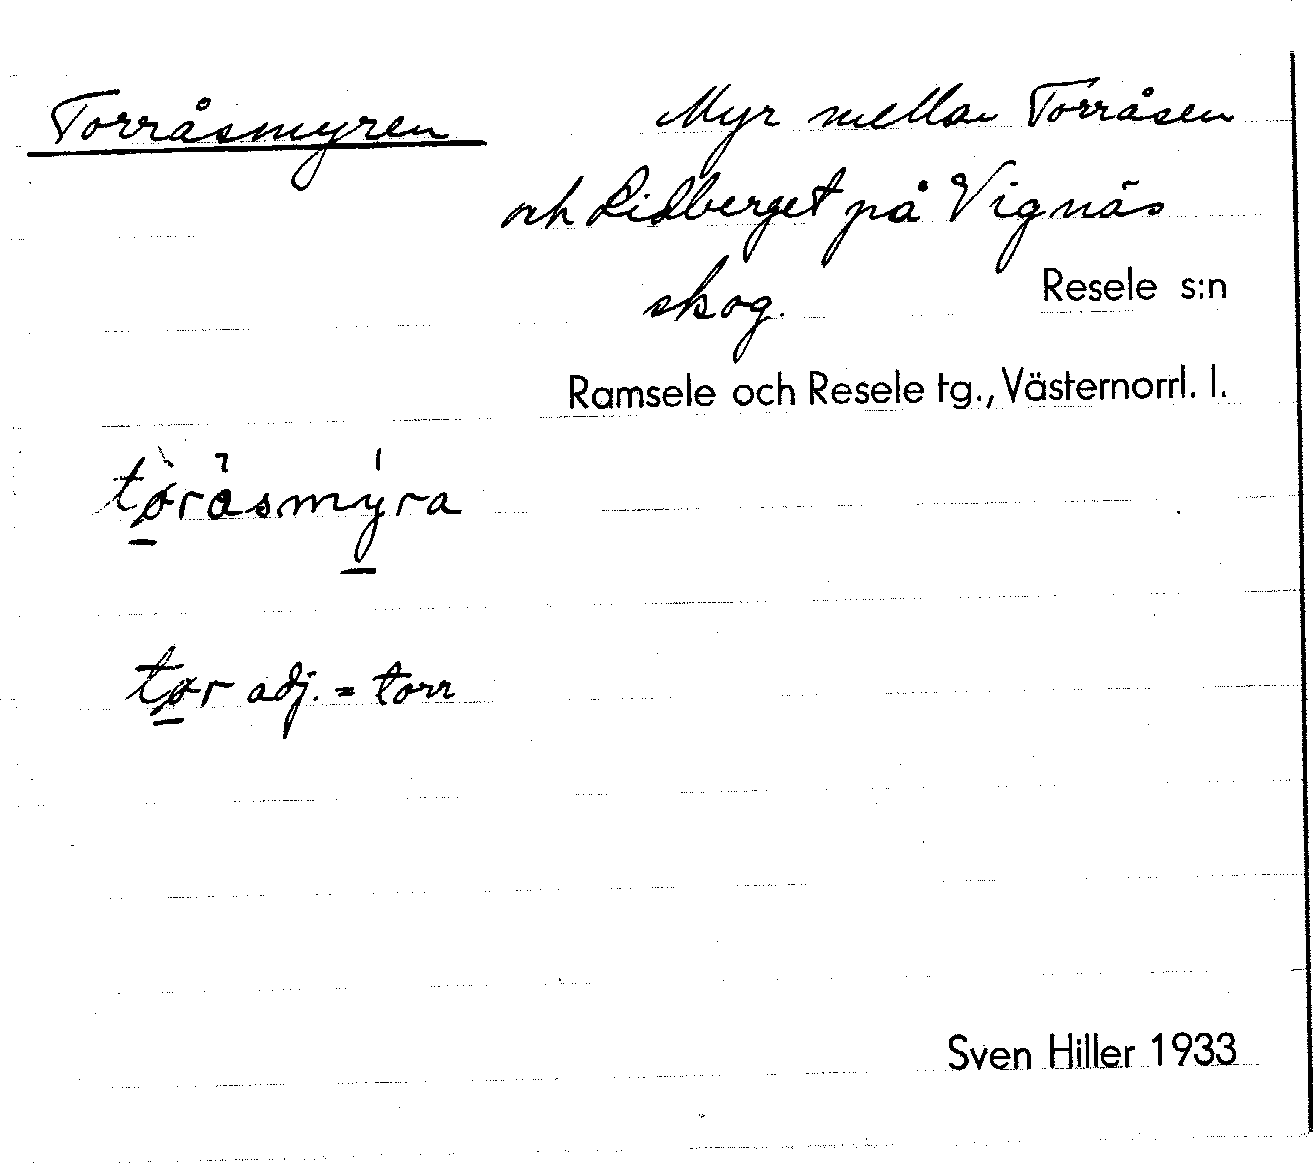 Torråsmyren
Myr mellan Torråsen
och Lidberget på Vignäs
skog.
Resele s:n
Ramsele och Resele tg., Västernorrl. l.
tøråsmyra
tør adj. = torr
Sven Hiller 1933